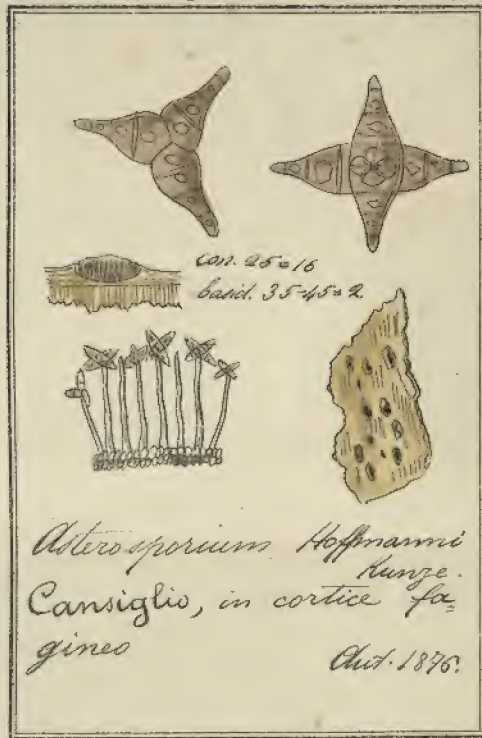 con. 25=16
basid. 35-45=2
Asterosporium Hoffmanni
Kunze.
Cansiglio, in cortice fa=
gineo
Aut. 1876.